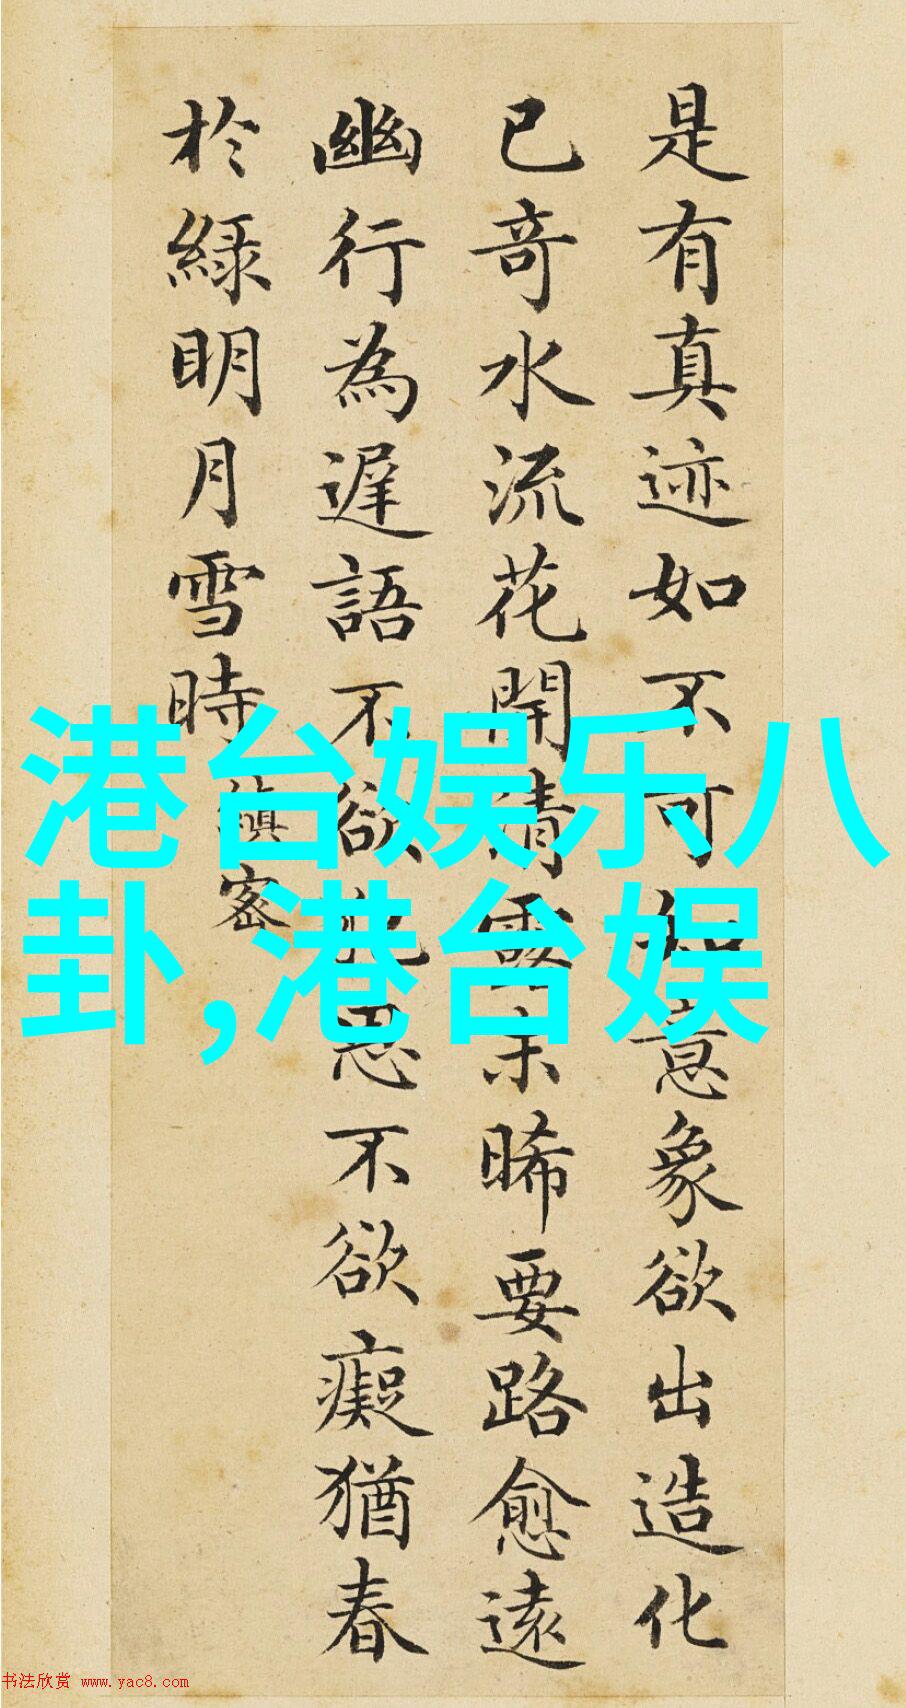 是有真迹如不可知意象欲出造化
已奇水流花開清露未晞要路愈遠
幽行為遲語不欲犯思不欲癡猶春
於綠明月雪時
縝密
港台娱乐八
卦,港台娱
书法欣赏 www.yac8.com